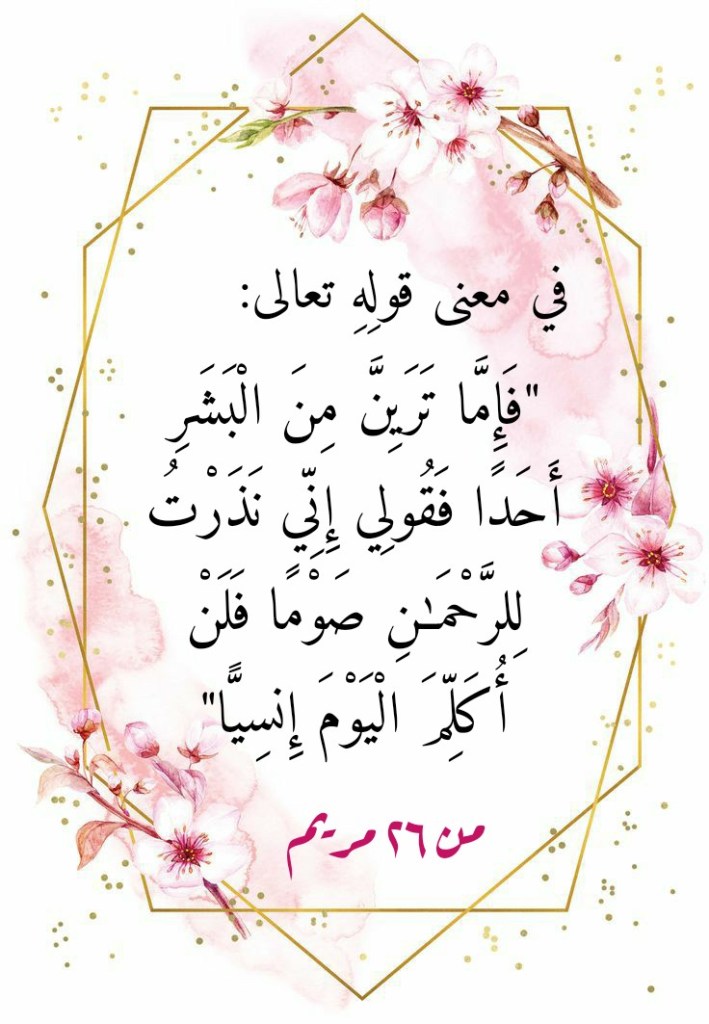 في معنى قولِهِ تعالى:
"فَإِمَّا تَرَيِنَّ مِنَ الْبَشَرِ
أَحَدًا فَقُولِي إِنِّي نَذَرْتُ
لِلرَّحْمَـٰنِ صَوْمًا فَلَنْ
أُكَلِّمَ الْيَوْمَ إِنسِيًّا"
من ٢٦ مريم